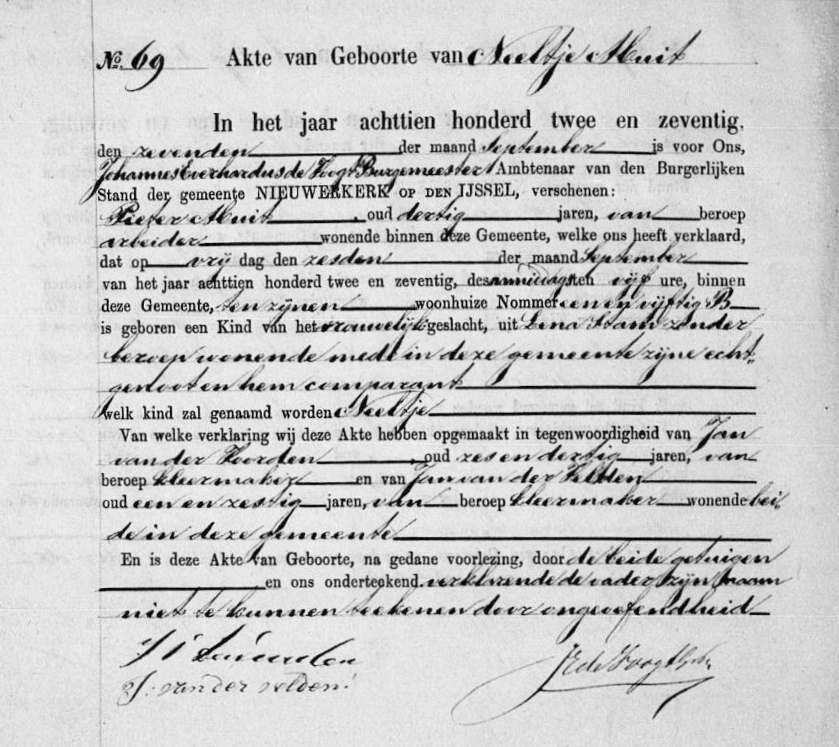 No. 69 Akte van Geboorte van Neeltje Muit
In het jaar achttien honderd twee en zeventig,
den zevenden der maand September is voor Ons,
Johannes Everhardus de Voogt Burgemeester Ambtenaar van den Burgerlijken
Stand der gemeente NIEUWERKERK OP DEN IJSSEL, verschenen:
Pieter Muit, oud dertig jaren, van beroep
arbeider wonende binnen deze Gemeente, welke ons heeft verklaard,
dat op vrij dag den zesden der maand September
van het jaar achttien honderd twee en zeventig, des namiddags ten vijf ure, binnen
deze Gemeente, ten zijnen woonhuize Nommer een en vijftig B
is geboren een Kind van het vrouwelijk geslacht, uit Lena Stam zonder
beroep wonende mede in deze gemeente zijne echt„
genoot en hem comparant
welk kind zal genaamd worden Neeltje
Van welke verklaring wij deze Akte hebben opgemaakt in tegenwoordigheid van Jan
van der Voorden, oud zes en dertig jaren, van
beroep kleermaker en van Jan van der Velden
oud een en zestig jaren, van beroep kleermaker wonende bei„
de in deze gemeente
En is deze Akte van Geboorte, na gedane voorlezing, door de beide getuigen
en ons onderteekend. verklarende de vader zijn naam
niet te kunnen teekenen door ongeoefendheid
JEde Voogt
J: van der velden